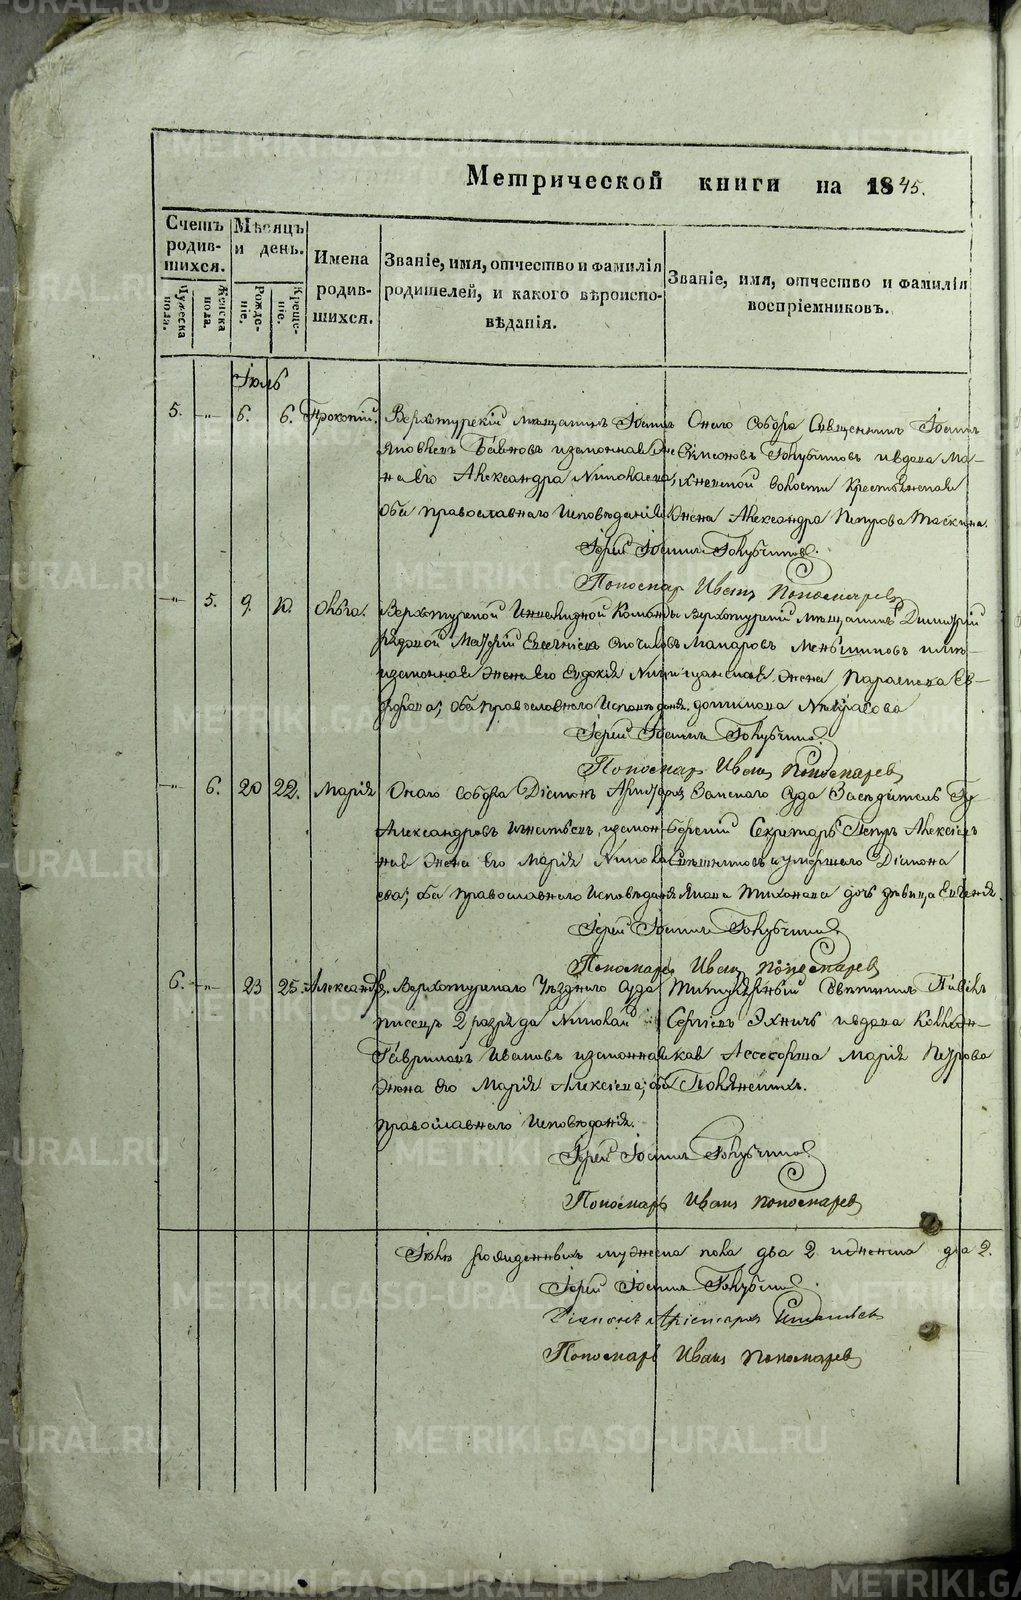 METRIKI.GASO-URAL.RU
Метрической книги на 1845.
Счетъ родив-шихся.
Мужеска пола.
Женска пола.
Мѣсяцъ и день.
Рожде-ніе.
Креще-ніе.
Имена родив-шихся.
Званіе, имя, отчество и фамилія родителей, и какого вѣроиспо-вѣданія.
Званіе, имя, отчество и фамилія воспріемниковъ.
Іюль
5. -„- 6. 6. Прокопій.
Верхотурскій мѣщанинъ Іоаннъ
Яковлевъ изаконная же-
на его Александра Николаева;
оба православнаго Исповѣданія
Онаго Собора Священникъ Іоаннъ
Симеоновъ Голубчиковъ и вдова
волости Крестьянская
Жена Александра Петрова
Іерей Іоаннъ Голубчиковъ.
Пономарь Иванъ Пономаревъ
-„- 5. 9. 10. Ольга.
Верхотурской Инвалидной Команды
рядовой
изаконная жена его Евдокія
оба православнаго Исповѣданія.
Верхотурскій мѣщанинъ Димитрій
Макаровъ Меньшиковъ и мѣ-
щанская жена Параскева Ев-
докимова Некрасова
Іерей Іоаннъ Голубчиковъ
Пономарь Иванъ Пономаревъ
-„- 6. 20 22. Марія
Онаго собора Діаконъ
Александровъ Игнатьевъ, изакон-
ная жена его Марія Никола-
ева; оба православнаго Исповѣданія
Земскаго Суда Засѣдатель Гу-
бернскій Секретарь Петръ Алексѣевъ
и умершаго Діакона
Тихонова дочь дѣвица Евгенія.
Іерей Іоаннъ Голубчиковъ
Пономарь Иванъ Пономаревъ
6. -„- 23 25. Александръ.
Верхотурскаго Уѣзднаго Суда
писецъ 2 разряда Николай
Гавриловъ Ивановъ изаконная
жена его Марія Алексѣева; оба
православнаго Исповѣданія.
Титулярный Совѣтникъ Павелъ
Сергѣевъ и вдова Коллеж-
ская Ассесорша Марія Петрова
Іерей Іоаннъ Голубчиковъ
Пономарь Иванъ Пономаревъ
Іюлѣ рожденныхъ мужеска пола два 2. и женска два 2.
Іерей Іоаннъ Голубчиковъ.
Діаконъ Игнатьевъ
Пономарь Иванъ Пономаревъ